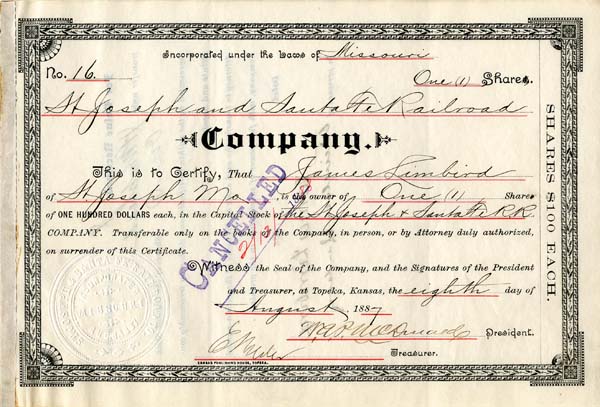 Incorporated under the Laws of Missouri
No. 16. One (1) Shares.
St Joseph and Santa Fe Railroad
Company.
This is to Certify, That James Limbird
of St Joseph Mo is the owner of One (1) Shares
of ONE HUNDRED DOLLARS each, in the Capital Stock of the St Joseph & Santa Fe R.R.
COMPANY. Transferable only on the books of the Company, in person, or by Attorney duly authorized,
on surrender of this Certificate.
Witness the Seal of the Company, and the Signatures of the President
and Treasurer, at Topeka, Kansas, the eighth day of
August 1887
President.
Treasurer.
KANSAS PUBLISHING HOUSE, TOPEKA.
SHARES $100 EACH.
CANCELLED